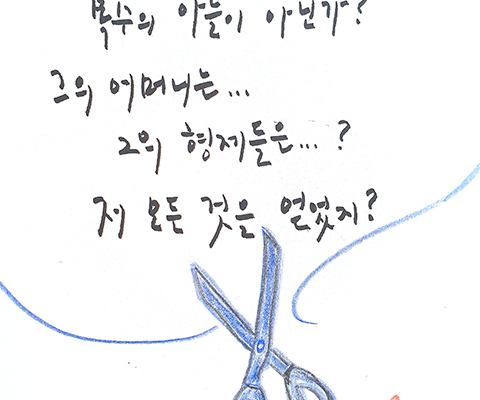 목수의 아들이 아닌가?
그의 어머니는...
그의 형제들은...?
저 모든 것을 얻었지?